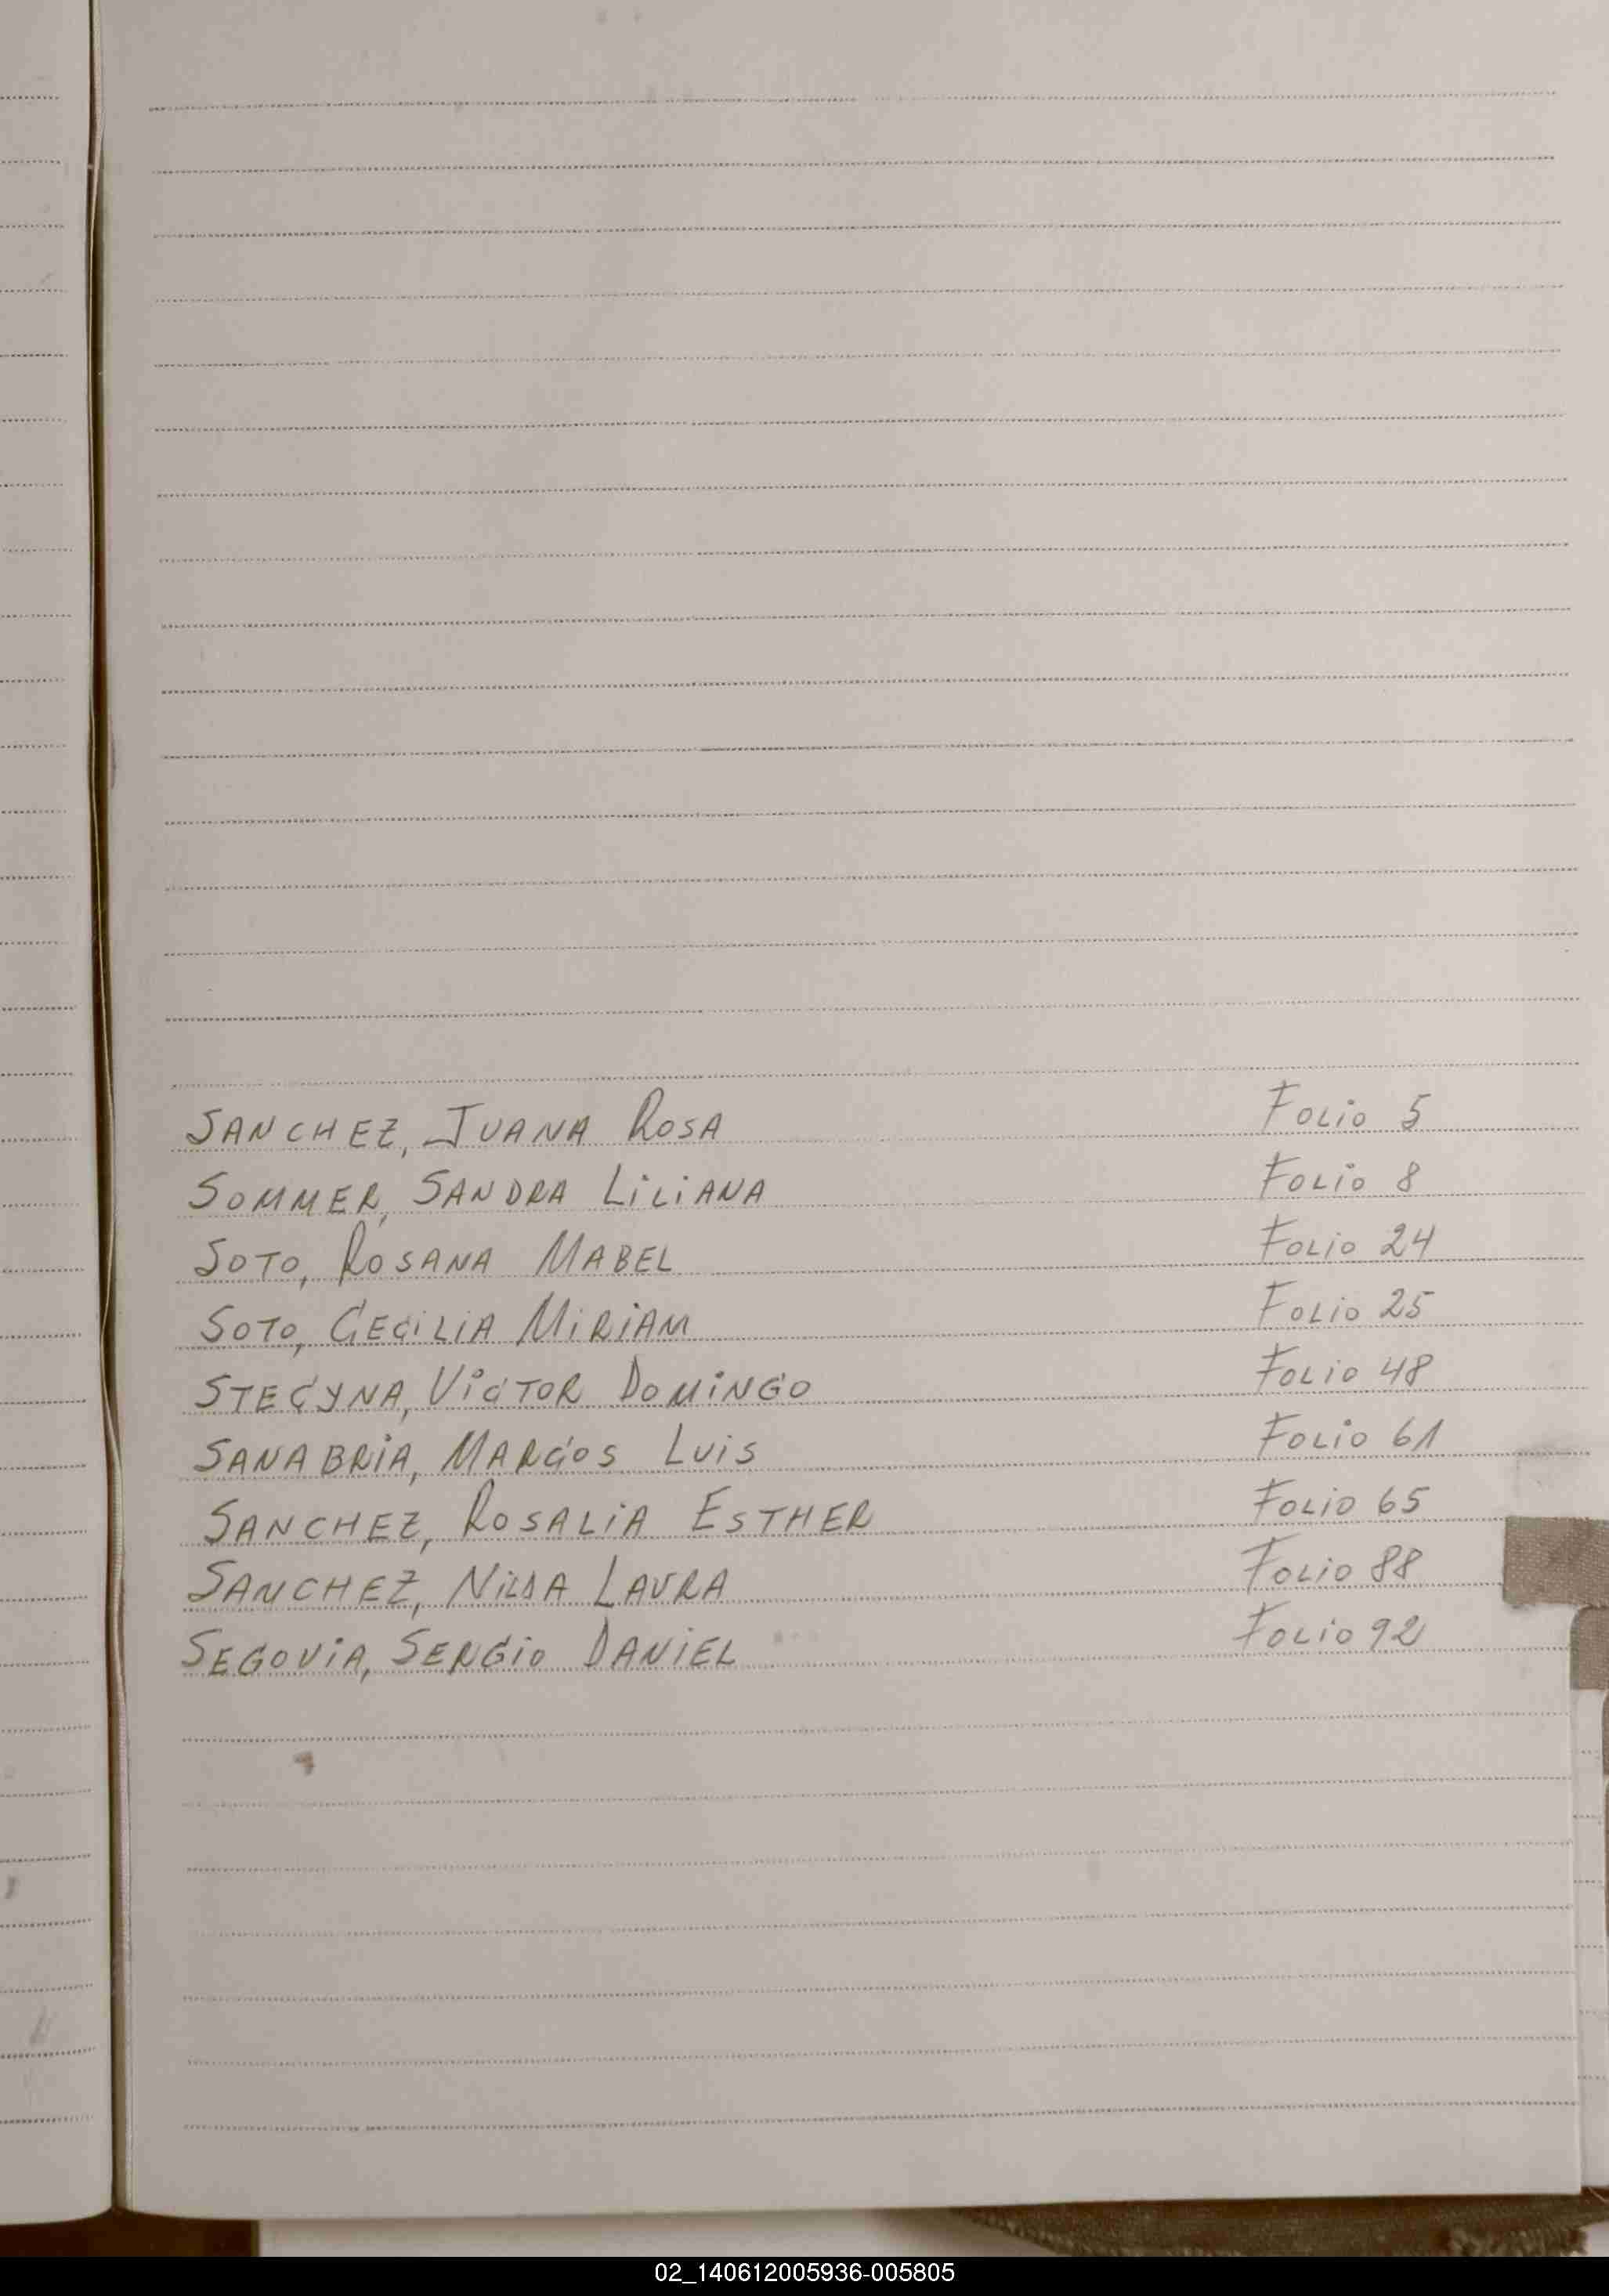 SANCHEZ, JUANA ROSA Folio 5
SOMMER, SANDRA LILIANA Folio 8
SOTO, ROSANA MABEL Folio 24
SOTO, CECILIA MIRIAM Folio 25
STECYNA, VICTOR DOMINGO Folio 48
SANABRIA, MARCOS LUIS Folio 61
SANCHEZ, ROSALIA ESTHER Folio 65
SANCHEZ, NILDA LAURA Folio 88
SEGOVIA, SERGIO DANIEL Folio 92
02_140612005936-005805